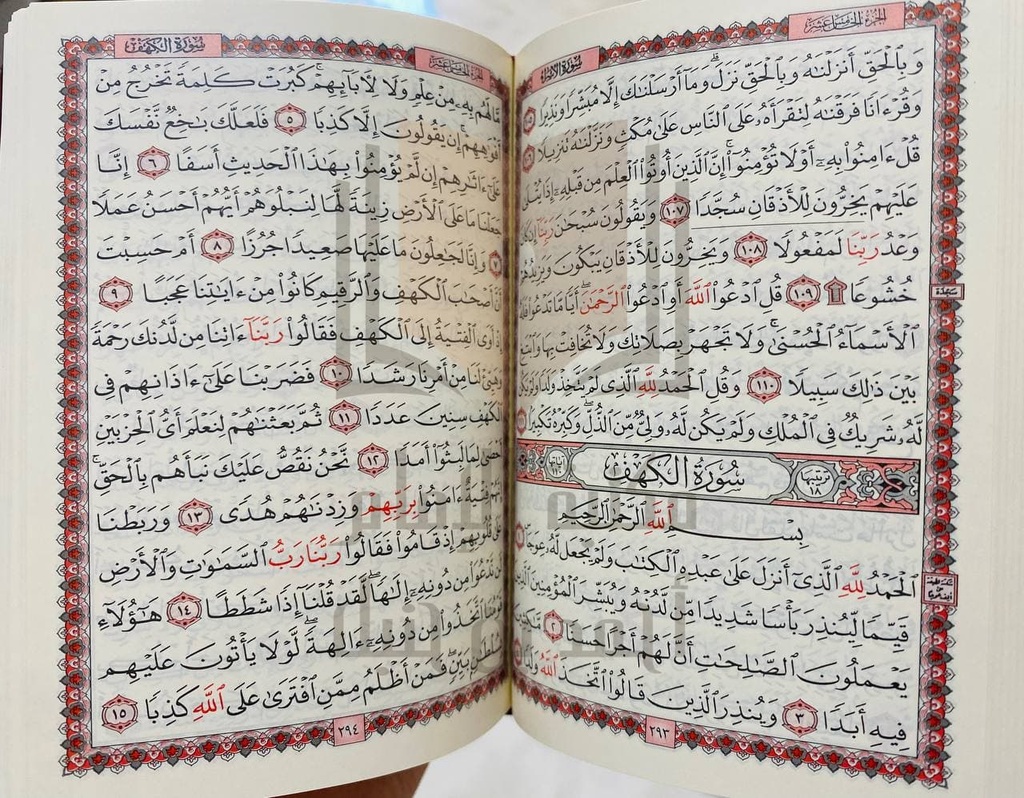 الجزء الخامس عشر
سورة الإسراء
وَبِالْحَقِّ أَنزَلْنَاهُ وَبِالْحَقِّ نَزَلَ وَمَا أَرْسَلْنَاكَ إِلَّا مُبَشِّرًا وَنَذِيرًا ١٠٥
وَقُرْءَانًا فَرَقْنَاهُ لِتَقْرَأَهُ عَلَى النَّاسِ عَلَى مُكْثٍ وَنَزَّلْنَاهُ تَنزِيلًا ١٠٦
قُلْ ءَامِنُوا بِهِ أَوْ لَا تُؤْمِنُوا إِنَّ الَّذِينَ أُوتُوا الْعِلْمَ مِن قَبْلِهِ إِذَا يُتْلَى
عَلَيْهِمْ يَخِرُّونَ لِلْأَذْقَانِ سُجَّدًا ١٠٧ وَيَقُولُونَ سُبْحَانَ رَبِّنَا إِن كَانَ
وَعْدُ رَبِّنَا لَمَفْعُولًا ١٠٨ وَيَخِرُّونَ لِلْأَذْقَانِ يَبْكُونَ وَيَزِيدُهُمْ
خُشُوعًا ۩ ١٠٩ قُلِ ادْعُوا اللَّهَ أَوِ ادْعُوا الرَّحْمَٰنَ أَيًّا مَّا تَدْعُوا فَلَهُ
الْأَسْمَاءُ الْحُسْنَى وَلَا تَجْهَرْ بِصَلَاتِكَ وَلَا تُخَافِتْ بِهَا وَابْتَغِ
بَيْنَ ذَٰلِكَ سَبِيلًا ١١٠ وَقُلِ الْحَمْدُ لِلَّهِ الَّذِي لَمْ يَتَّخِذْ وَلَدًا وَلَمْ يَكُن
لَّهُ شَرِيكٌ فِي الْمُلْكِ وَلَمْ يَكُن لَّهُ وَلِيٌّ مِّنَ الذُّلِّ وَكَبِّرْهُ تَكْبِيرًا
ترتيبها ١٨ سُورَةُ الْكَهْفِ
بِسْمِ اللَّهِ الرَّحْمَٰنِ الرَّحِيمِ
الْحَمْدُ لِلَّهِ الَّذِي أَنزَلَ عَلَى عَبْدِهِ الْكِتَابَ وَلَمْ يَجْعَل لَّهُ عِوَجًا
قَيِّمًا لِّيُنذِرَ بَأْسًا شَدِيدًا مِّن لَّدُنْهُ وَيُبَشِّرَ الْمُؤْمِنِينَ الَّذِينَ
يَعْمَلُونَ الصَّالِحَاتِ أَنَّ لَهُمْ أَجْرًا حَسَنًا ٢ مَّاكِثِينَ
فِيهِ أَبَدًا ٣ وَيُنذِرَ الَّذِينَ قَالُوا اتَّخَذَ اللَّهُ وَلَدًا
٢٩٣
سجدة
سورة الكهف
الجزء الخامس عشر
مَّا لَهُم بِهِ مِنْ عِلْمٍ وَلَا لِآبَائِهِمْ كَبُرَتْ كَلِمَةً تَخْرُجُ مِنْ
أَفْوَاهِهِمْ إِن يَقُولُونَ إِلَّا كَذِبًا ٥ فَلَعَلَّكَ بَاخِعٌ نَّفْسَكَ
عَلَى ءَاثَارِهِمْ إِن لَّمْ يُؤْمِنُوا بِهَٰذَا الْحَدِيثِ أَسَفًا ٦ إِنَّا
جَعَلْنَا مَا عَلَى الْأَرْضِ زِينَةً لَّهَا لِنَبْلُوَهُمْ أَيُّهُمْ أَحْسَنُ عَمَلًا
٧ وَإِنَّا لَجَاعِلُونَ مَا عَلَيْهَا صَعِيدًا جُرُزًا ٨ أَمْ حَسِبْتَ
أَنَّ أَصْحَابَ الْكَهْفِ وَالرَّقِيمِ كَانُوا مِنْ ءَايَاتِنَا عَجَبًا ٩
إِذْ أَوَى الْفِتْيَةُ إِلَى الْكَهْفِ فَقَالُوا رَبَّنَا ءَاتِنَا مِن لَّدُنكَ رَحْمَةً
وَهَيِّئْ لَنَا مِنْ أَمْرِنَا رَشَدًا ١٠ فَضَرَبْنَا عَلَى ءَاذَانِهِمْ فِي
الْكَهْفِ سِنِينَ عَدَدًا ١١ ثُمَّ بَعَثْنَاهُمْ لِنَعْلَمَ أَيُّ الْحِزْبَيْنِ
أَحْصَى لِمَا لَبِثُوا أَمَدًا ١٢ نَّحْنُ نَقُصُّ عَلَيْكَ نَبَأَهُم بِالْحَقِّ
إِنَّهُمْ فِتْيَةٌ ءَامَنُوا بِرَبِّهِمْ وَزِدْنَاهُمْ هُدًى ١٣ وَرَبَطْنَا
عَلَى قُلُوبِهِمْ إِذْ قَامُوا فَقَالُوا رَبُّنَا رَبُّ السَّمَاوَاتِ وَالْأَرْضِ
لَن نَّدْعُوَا مِن دُونِهِ إِلَٰهًا لَّقَدْ قُلْنَا إِذًا شَطَطًا ١٤ هَٰؤُلَاءِ
قَوْمُنَا اتَّخَذُوا مِن دُونِهِ ءَالِهَةً لَّوْلَا يَأْتُونَ عَلَيْهِم
بِسُلْطَانٍ بَيِّنٍ فَمَنْ أَظْلَمُ مِمَّنِ افْتَرَى عَلَى اللَّهِ كَذِبًا ١٥
٢٩٤